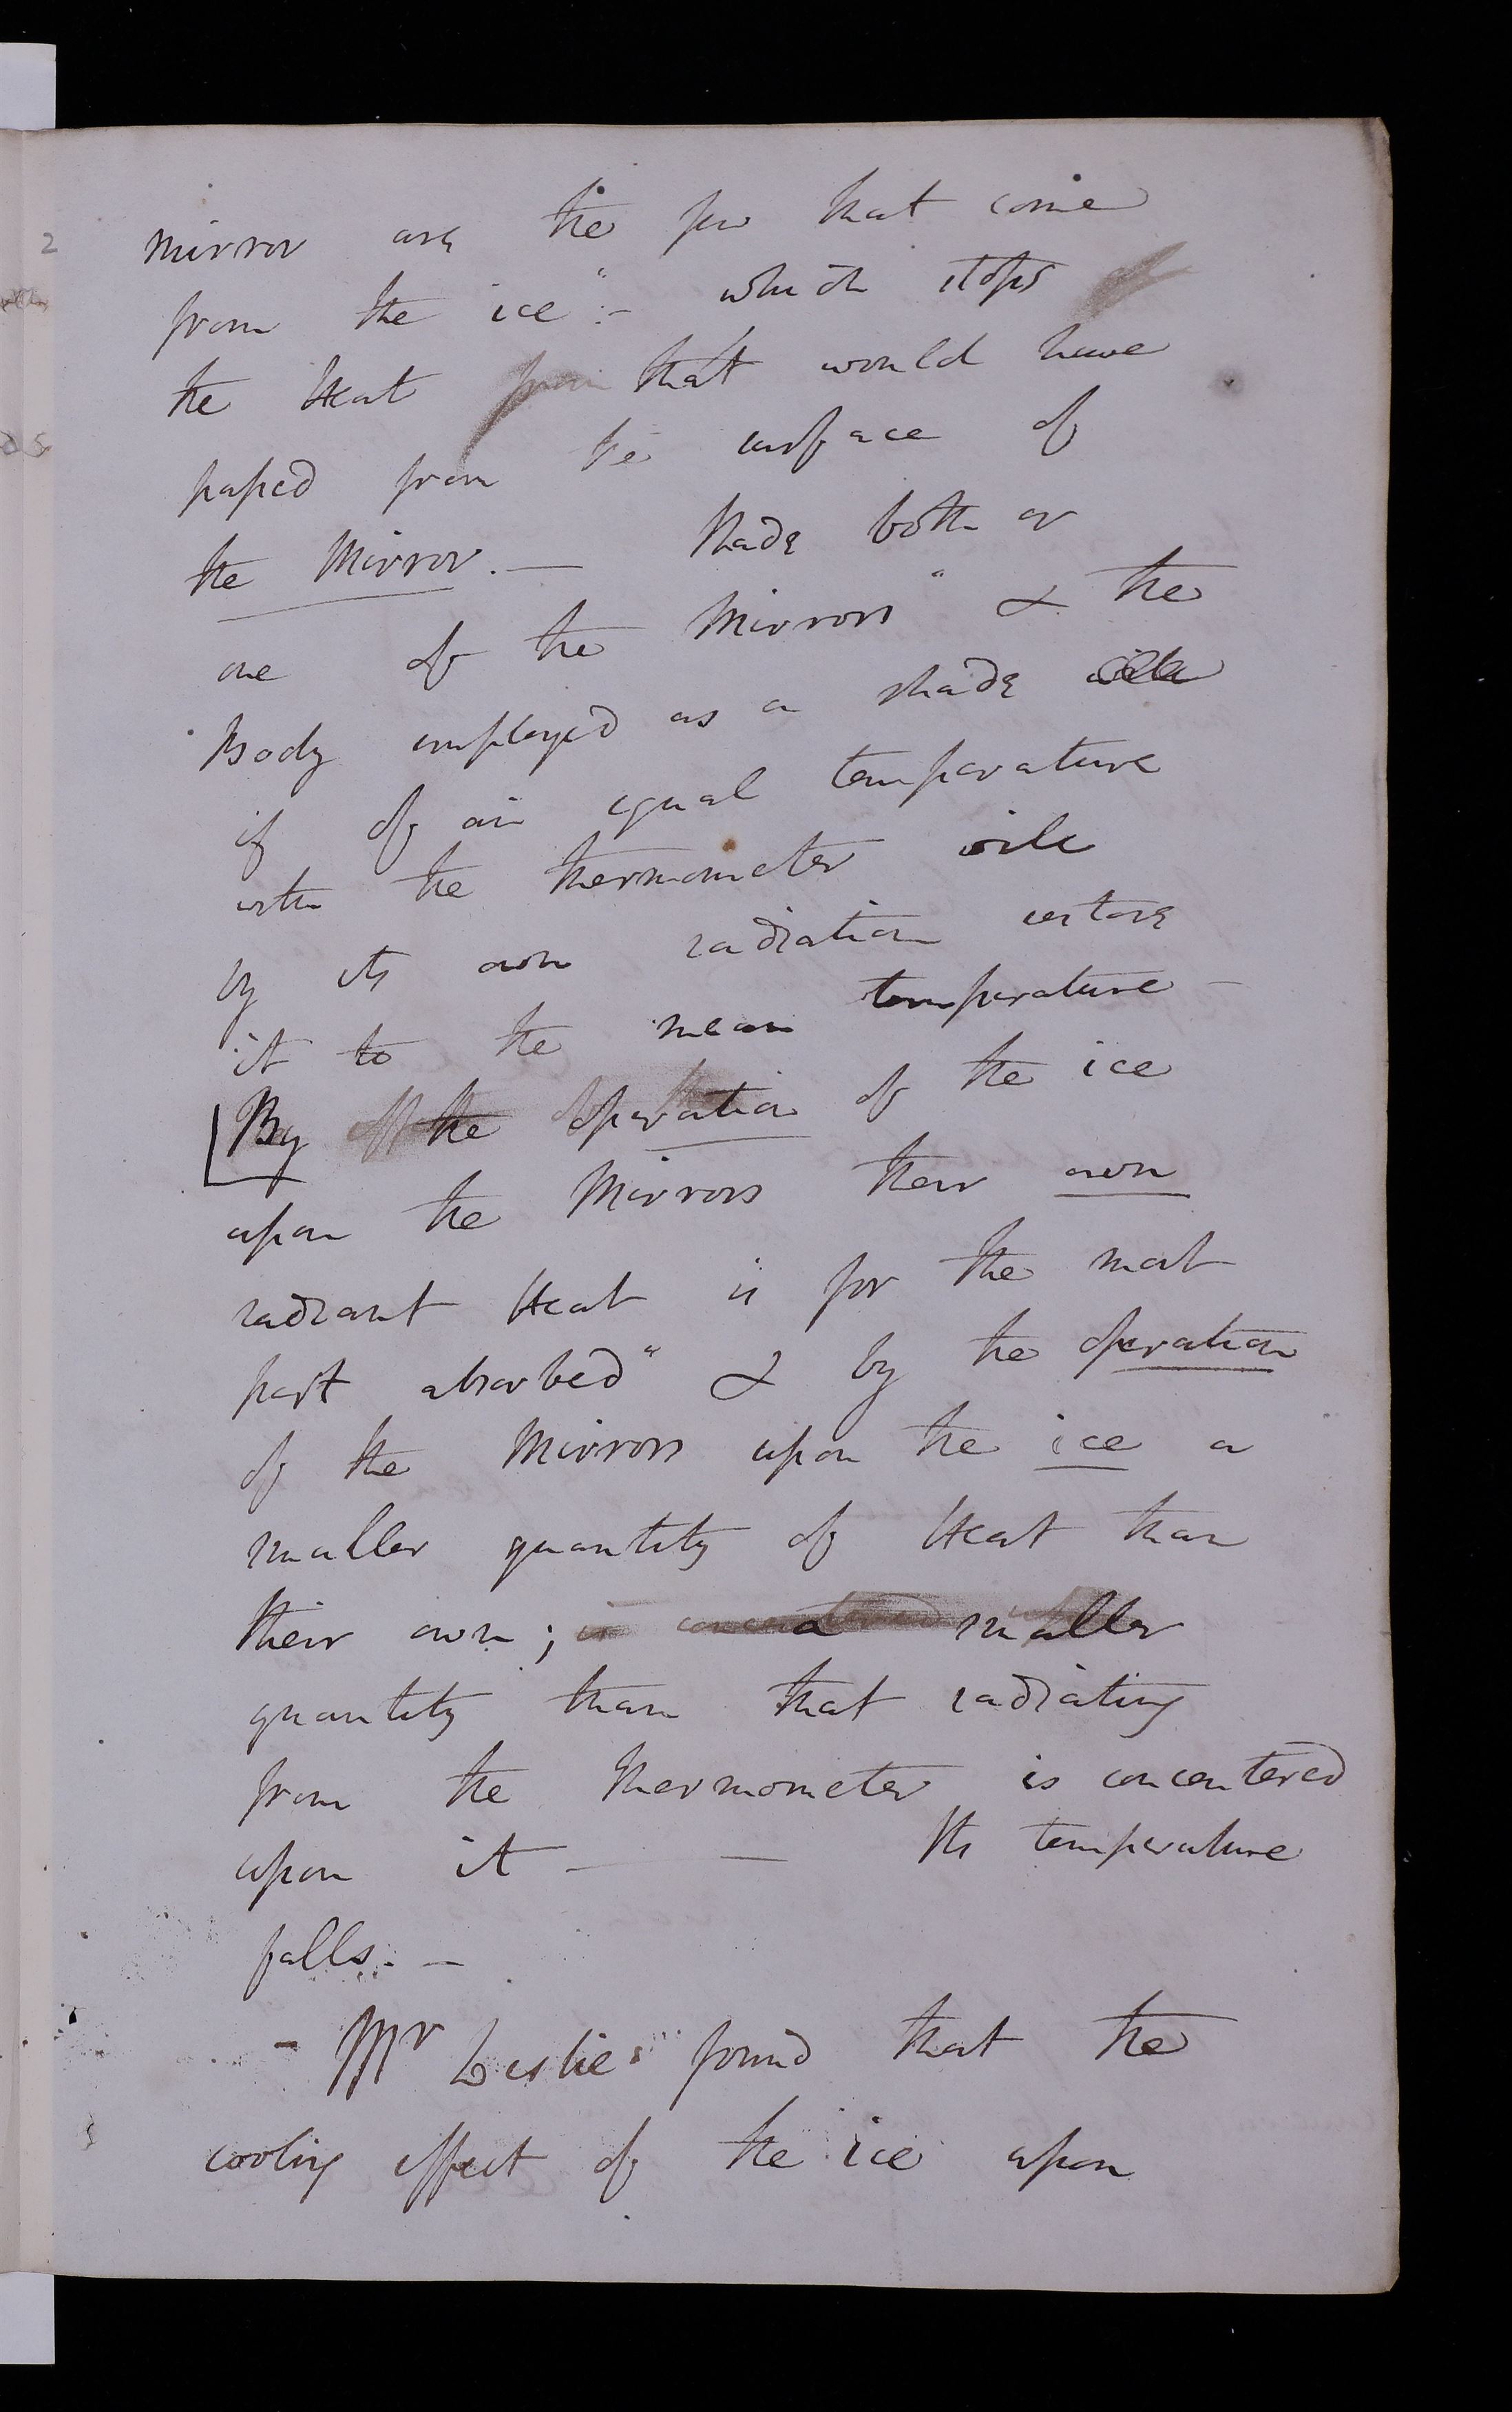 mirror are the few that come
from the ice":- which stops
the Heat from that would have
passed from the surface of
the Mirror. — Shade both or
one of the Mirrors" & the
Body employed as a shade
if of an equal temperature
with the thermometer will
by its own radiation restore
it to the mean temperature -
[By the operation of the ice
upon the Mirrors their own
radiant Heat is for the most
part absorbed" & by the operation
of the Mirrors upon the ice a
smaller quantity of Heat than
their own; is concentered a smaller
quantity than that radiating
from the thermometer is concentered
upon it — — Its temperature
falls. -
- Mr Leslie found that the
cooling effect of the ice upon
2